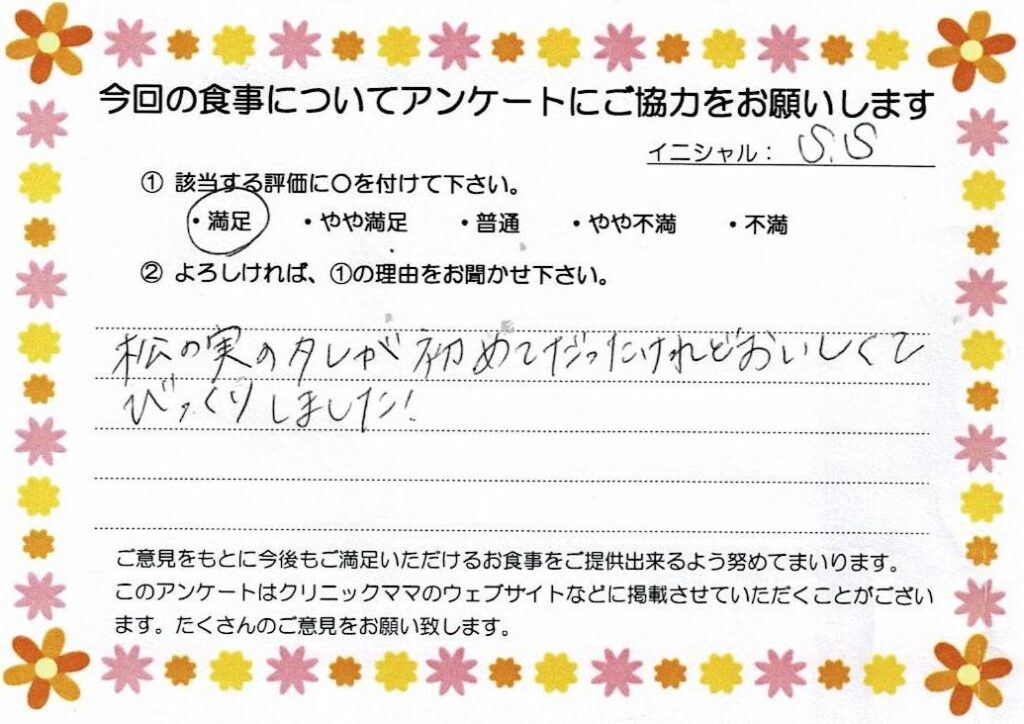 今回の食事についてアンケートにご協力をお願いします
イニシャル： S.S
① 該当する評価に〇を付けて下さい。
・満足 ・やや満足 ・普通 ・やや不満 ・不満
② よろしければ、①の理由をお聞かせ下さい。
松の実のタレが初めてだったけれどおいしくて
びっくりしました!
ご意見をもとに今後もご満足いただけるお食事をご提供出来るよう努めてまいります。
このアンケートはクリニックママのウェブサイトなどに掲載させていただくことがござい
ます。たくさんのご意見をお願い致します。